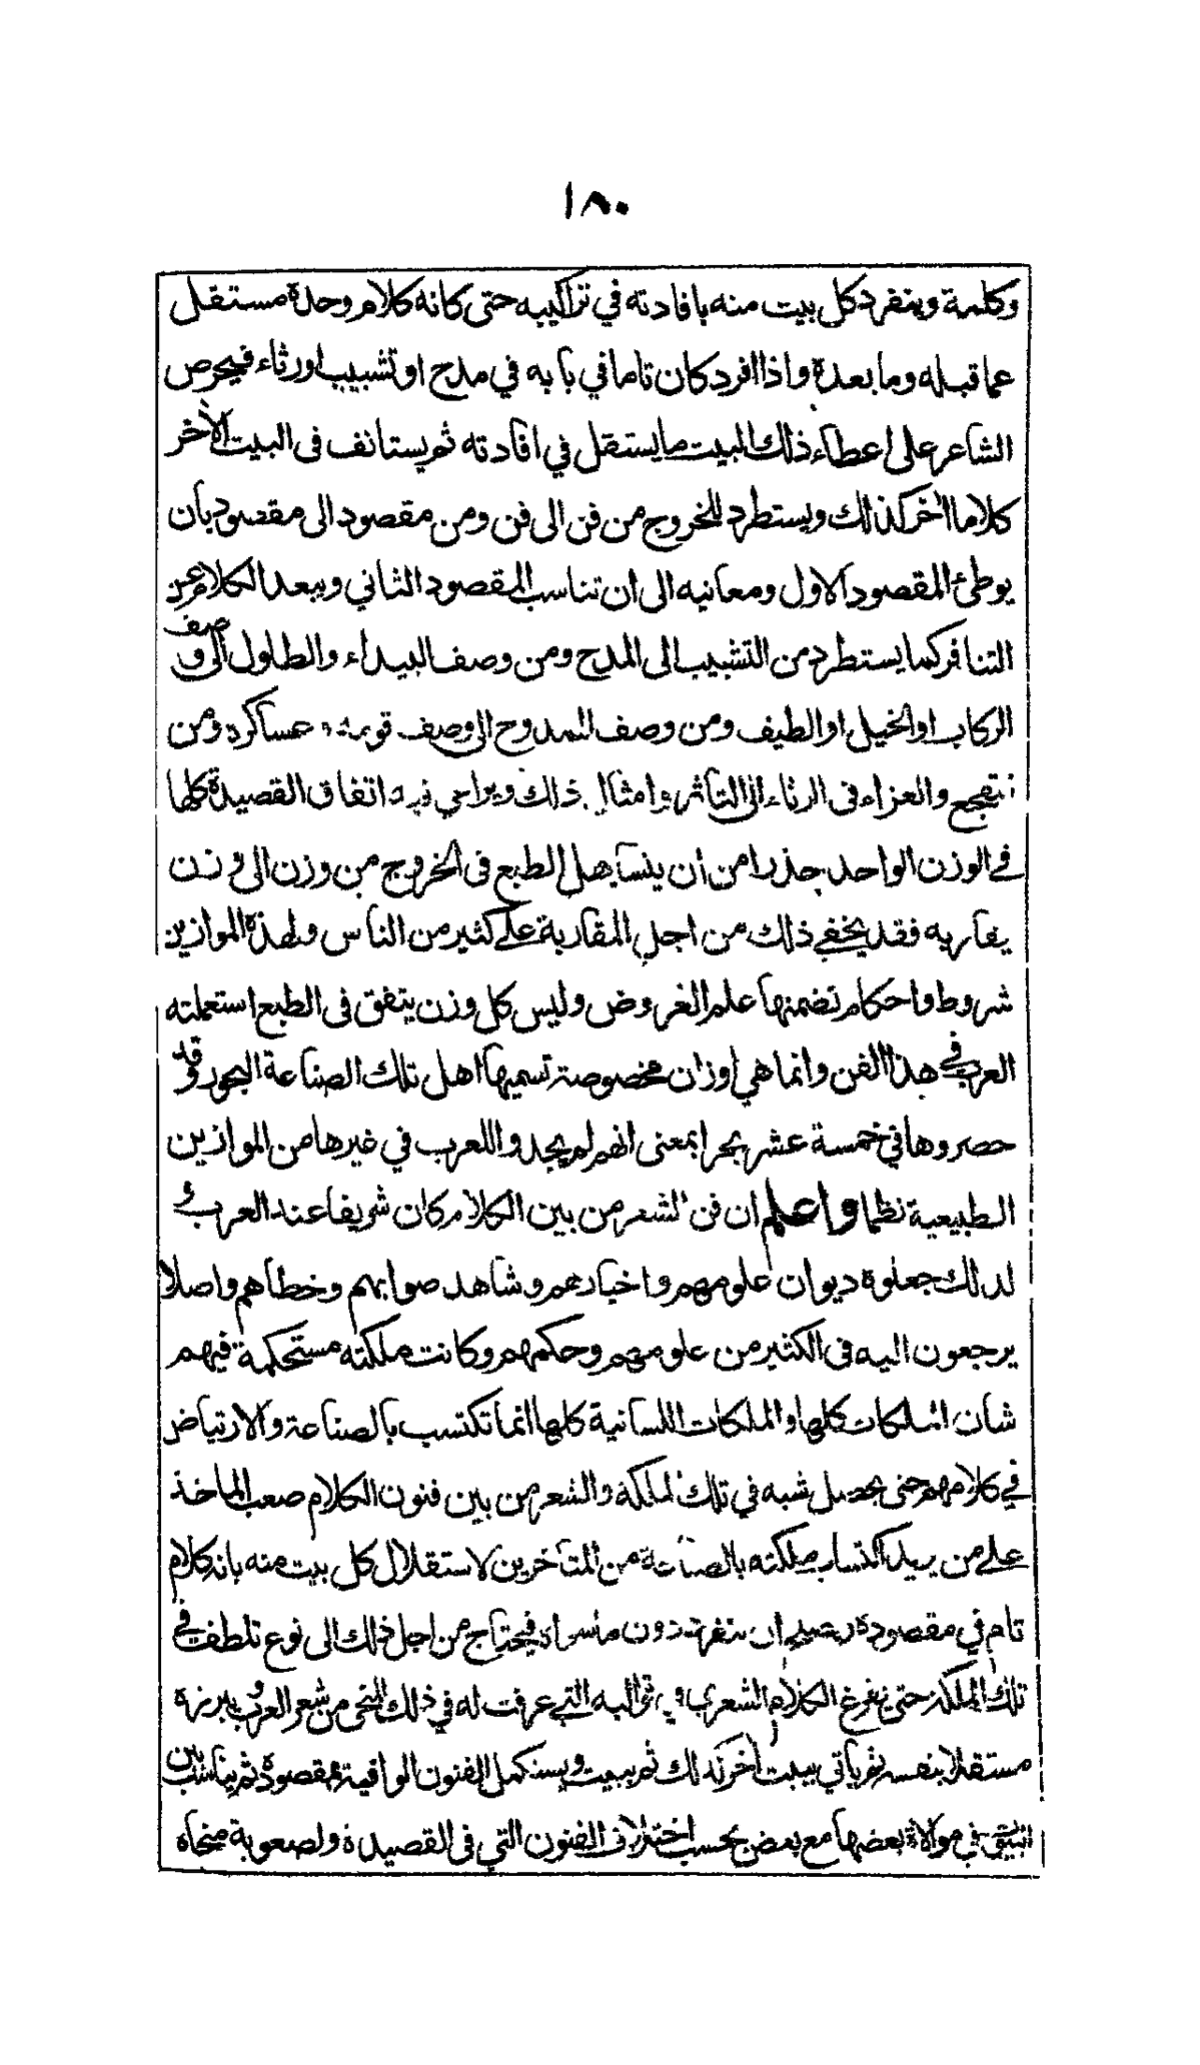 ١٨٠
وكلمة وينفرد كل بيت منه بافادته في تراكيبه حتى كانه كلام وحدة مستقل
عما قبله وما بعدة واذا افرد كان تاما في بابه في مدح او تشبيب اورثاء فيحرص
الشاعر على اعطاء ذلك البيت ما يستقل في افادته ثم يستانف فى البيت الأخر
كلاما اخر كذلك ويستطرد للخروج من فن الى فن ومن مقصود الى مقصود بان
يوطئ المقصود الاول ومعانيه الى ان تناسب المقصود الثاني ويبعد الكلام عن
التنافر كما يستطرد من التشبيب الى المدح ومن وصف البيداء والطلول الى وصف
الركاب او الخيل او الطيف ومن وصف الممدوح الى وصف قومه وعساكره ومن
تفجع والعزاء فى الرثاء الى التأثر وامثال ذلك ويراعي فيه اتفاق القصيدة كلها
في الوزن الواحد حذرا من ان يتساهل الطبع فى الخروج من وزن الى وزن
يقاربه فقد يخفى ذلك من اجل المقاربة على كثير من الناس ولهذة الموازين
شروط واحكام تضمنها علم الغروض وليس كل وزن يتفق فى الطبع استعملته
العرب في هذا الفن وانما هي اوزان مخصوصة تسميها اهل تلك الصناعة البحور وقد
حصروها في خمسة عشر بحرا بمعنى انهم لم يجدوا للعرب في غيرها من الموازين
الطبيعية نظما واعلم ان فن الشعر من بين الكلام كان شريفا عند العرب و
لذلك جعلوة ديوان علومهم واخبارهم وشاهد صوابهم وخطاهم واصلا
يرجعون اليه فى الكثير من علومهم وحكمهم وكانت ملكته مستحكمة فيهم
شان الملكات كلها والملكات اللسانية كلها انما تكتسب بالصناعة والارتياض
في كلامهم حتى يحصل شبه في تلك الملكة والشعر من بين فنون الكلام صعب الماخذ
على من يريد اكتساب ملكته بالصناعة من المتأخرين لاستقلال كل بيت منه بانه كلام
تام في مقصودة ويصلح ان ينفرد دون ما سواه فيحتاج من اجل ذلك الى نوع تلطف في
تلك الملكة حتى يفرغ الكلام الشعري في قوالبه التي عرفت له في ذلك النحى من شعر العرب ويبرزه
مستقلا بنفسه ثم ياتي ببيت اخر كذلك ثم ببيت ويستكمل الفنون الوافية بمقصودة ثم يناسب بين
البيوت في موالاة بعضها مع بعض بحسب اختلاف الفنون التي فى القصيدة ولصعوبة منحاه